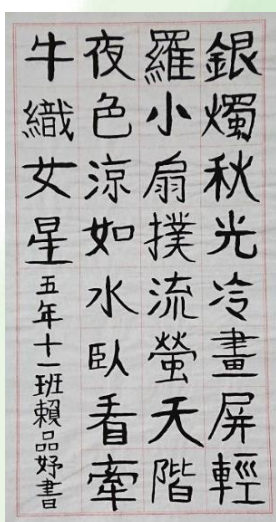 銀燭秋光冷畫屏輕
羅小扇撲流螢天階
夜色涼如水臥看牽
牛織女星五年十一班賴品妤書